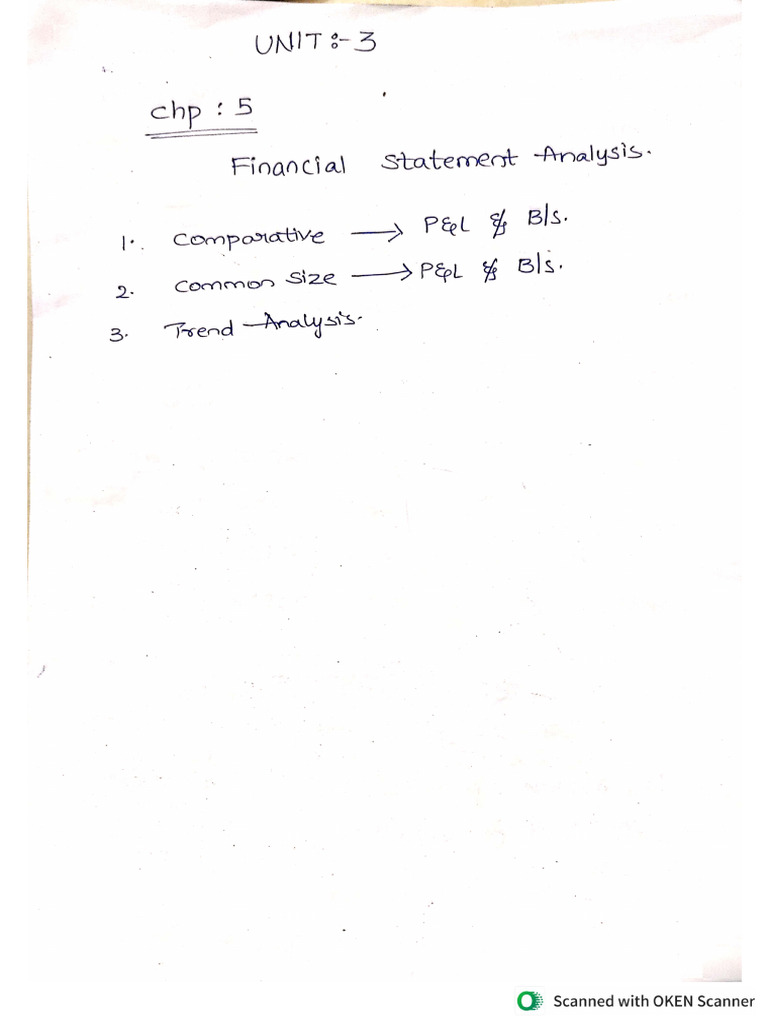 UNIT :- 3
Chp : 5
Financial Statement Analysis.
1. Comparative → P&L & B/s.
2. Common Size → P&L & B/s.
3. Trend Analysis.
Scanned with OKEN Scanner